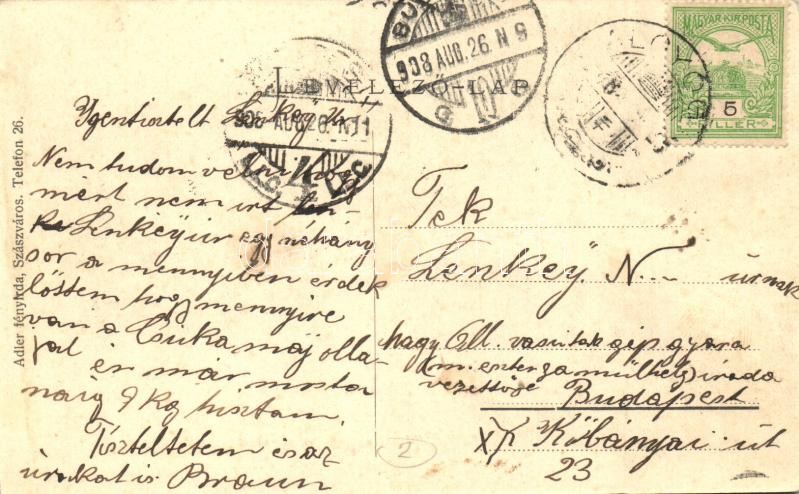 LEVELEZŐ-LAP
MAGYAR KIR. POSTA
5
FILLÉR
BUD
908 AUG. 26. N 9
908 AUG 26. N11
4
Adler fényirda, Szászváros. Telefon 26.
Igentisztelt Lenkey Úr
Nem tudom vélni hogy
miért nem irt
Lenkey úr egy néhány
sor a mennyiben érdek
lőttem hogy mennyire
van a Csuka máj olla
jal én már mosta
náig 9 kg hiztam.
Tiszteltetem és az
urakat is Braun
Tek
Lenkey N. — úrnak
nagy Áll. vasutak gépgyára
(m. eszterga műhely) iroda
vezettője Budapest
X/K Kőbányai út
23
2